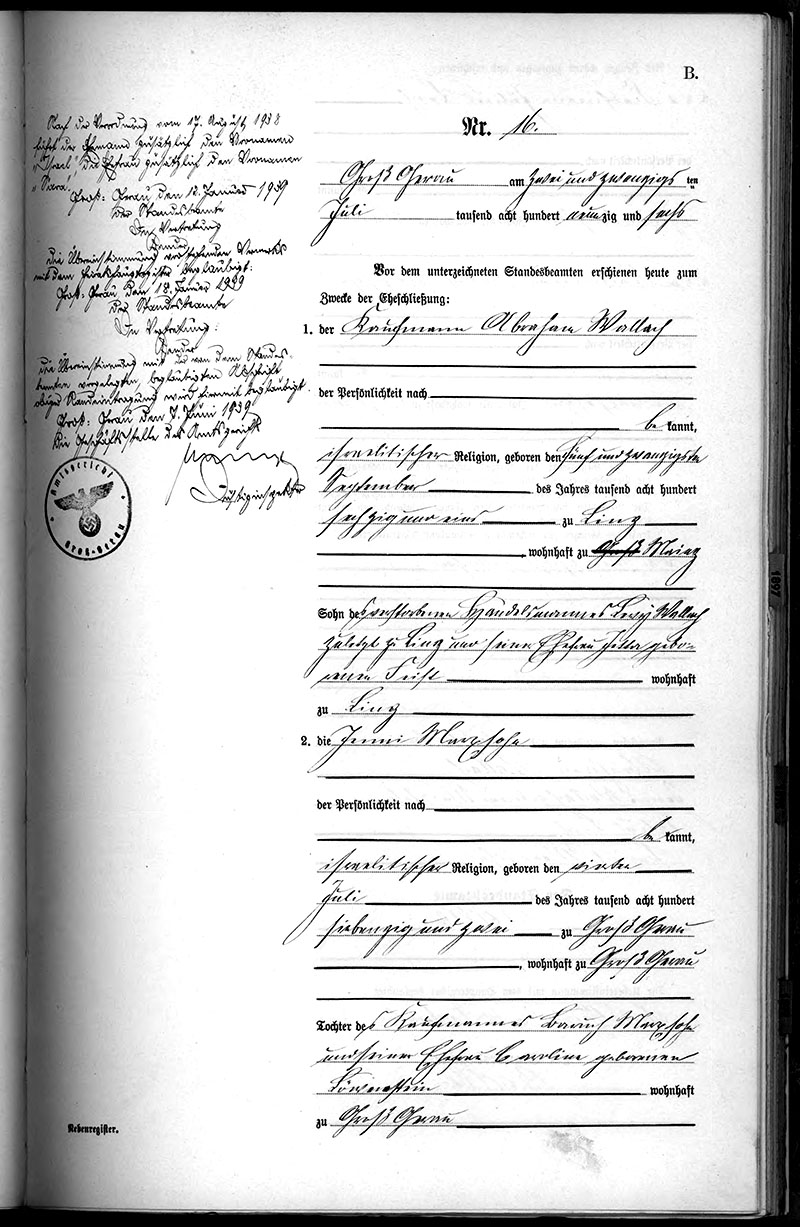 B.
Nr. 16.
Groß Gerau am zwei und zwanzigs ten
Juli tausend acht hundert neun zig und sechs
Vor dem unterzeichneten Standesbeamten erschienen heute zum
Zwecke der Eheschließung:
1. der Kaufmann Abraham Wallach
der Persönlichkeit nach
be kannt,
israelitischer Religion, geboren den fünf und zwanzigsten
September des Jahres tausend acht hundert
sechzig und eins zu Linz
, wohnhaft zu Groß Mainz
Sohn des verstorbenen Handelsmannes Levy Wallach
zuletzt zu Linz und seiner Ehefrau Jetta gebo-
renen Feist wohnhaft
zu Linz
2. die Jenni Marxsohn
der Persönlichkeit nach
be kannt,
israelitischer Religion, geboren den vierten
Juli des Jahres tausend acht hundert
siebenzig und zwei zu Groß Gerau
, wohnhaft zu Groß Gerau
Tochter des Kaufmannes Baruch Marxsohn
und seiner Ehefrau Caroline geborenen
Löwenstein wohnhaft
zu Groß Gerau
Nebenregister.
Nach der Verordnung vom 17. August 1938
führt der Ehemann zusätzlich den Vornamen
„Israel", die Ehefrau zusätzlich den Vornamen
„Sara".
Groß-Gerau, den 18. Januar 1939
Der Standesbeamte
In Vertretung
Die Übereinstimmung vorstehenden Vermerks
mit dem Erstregister beglaubigt:
Groß-Gerau, den 18. Januar 1939
Der Standesbeamte
In Vertretung:
Die Übereinstimmung mit der von dem Standes-
beamten vorgelegten, beglaubigten Abschrift
obiger Randeintragung wird hiermit beglaubigt.
Groß-Gerau, den 7. Juni 1939
Die Geschäftsstelle des Amtsgerichts
Justizinspektor
Amtsgericht
Groß-Gerau
1897